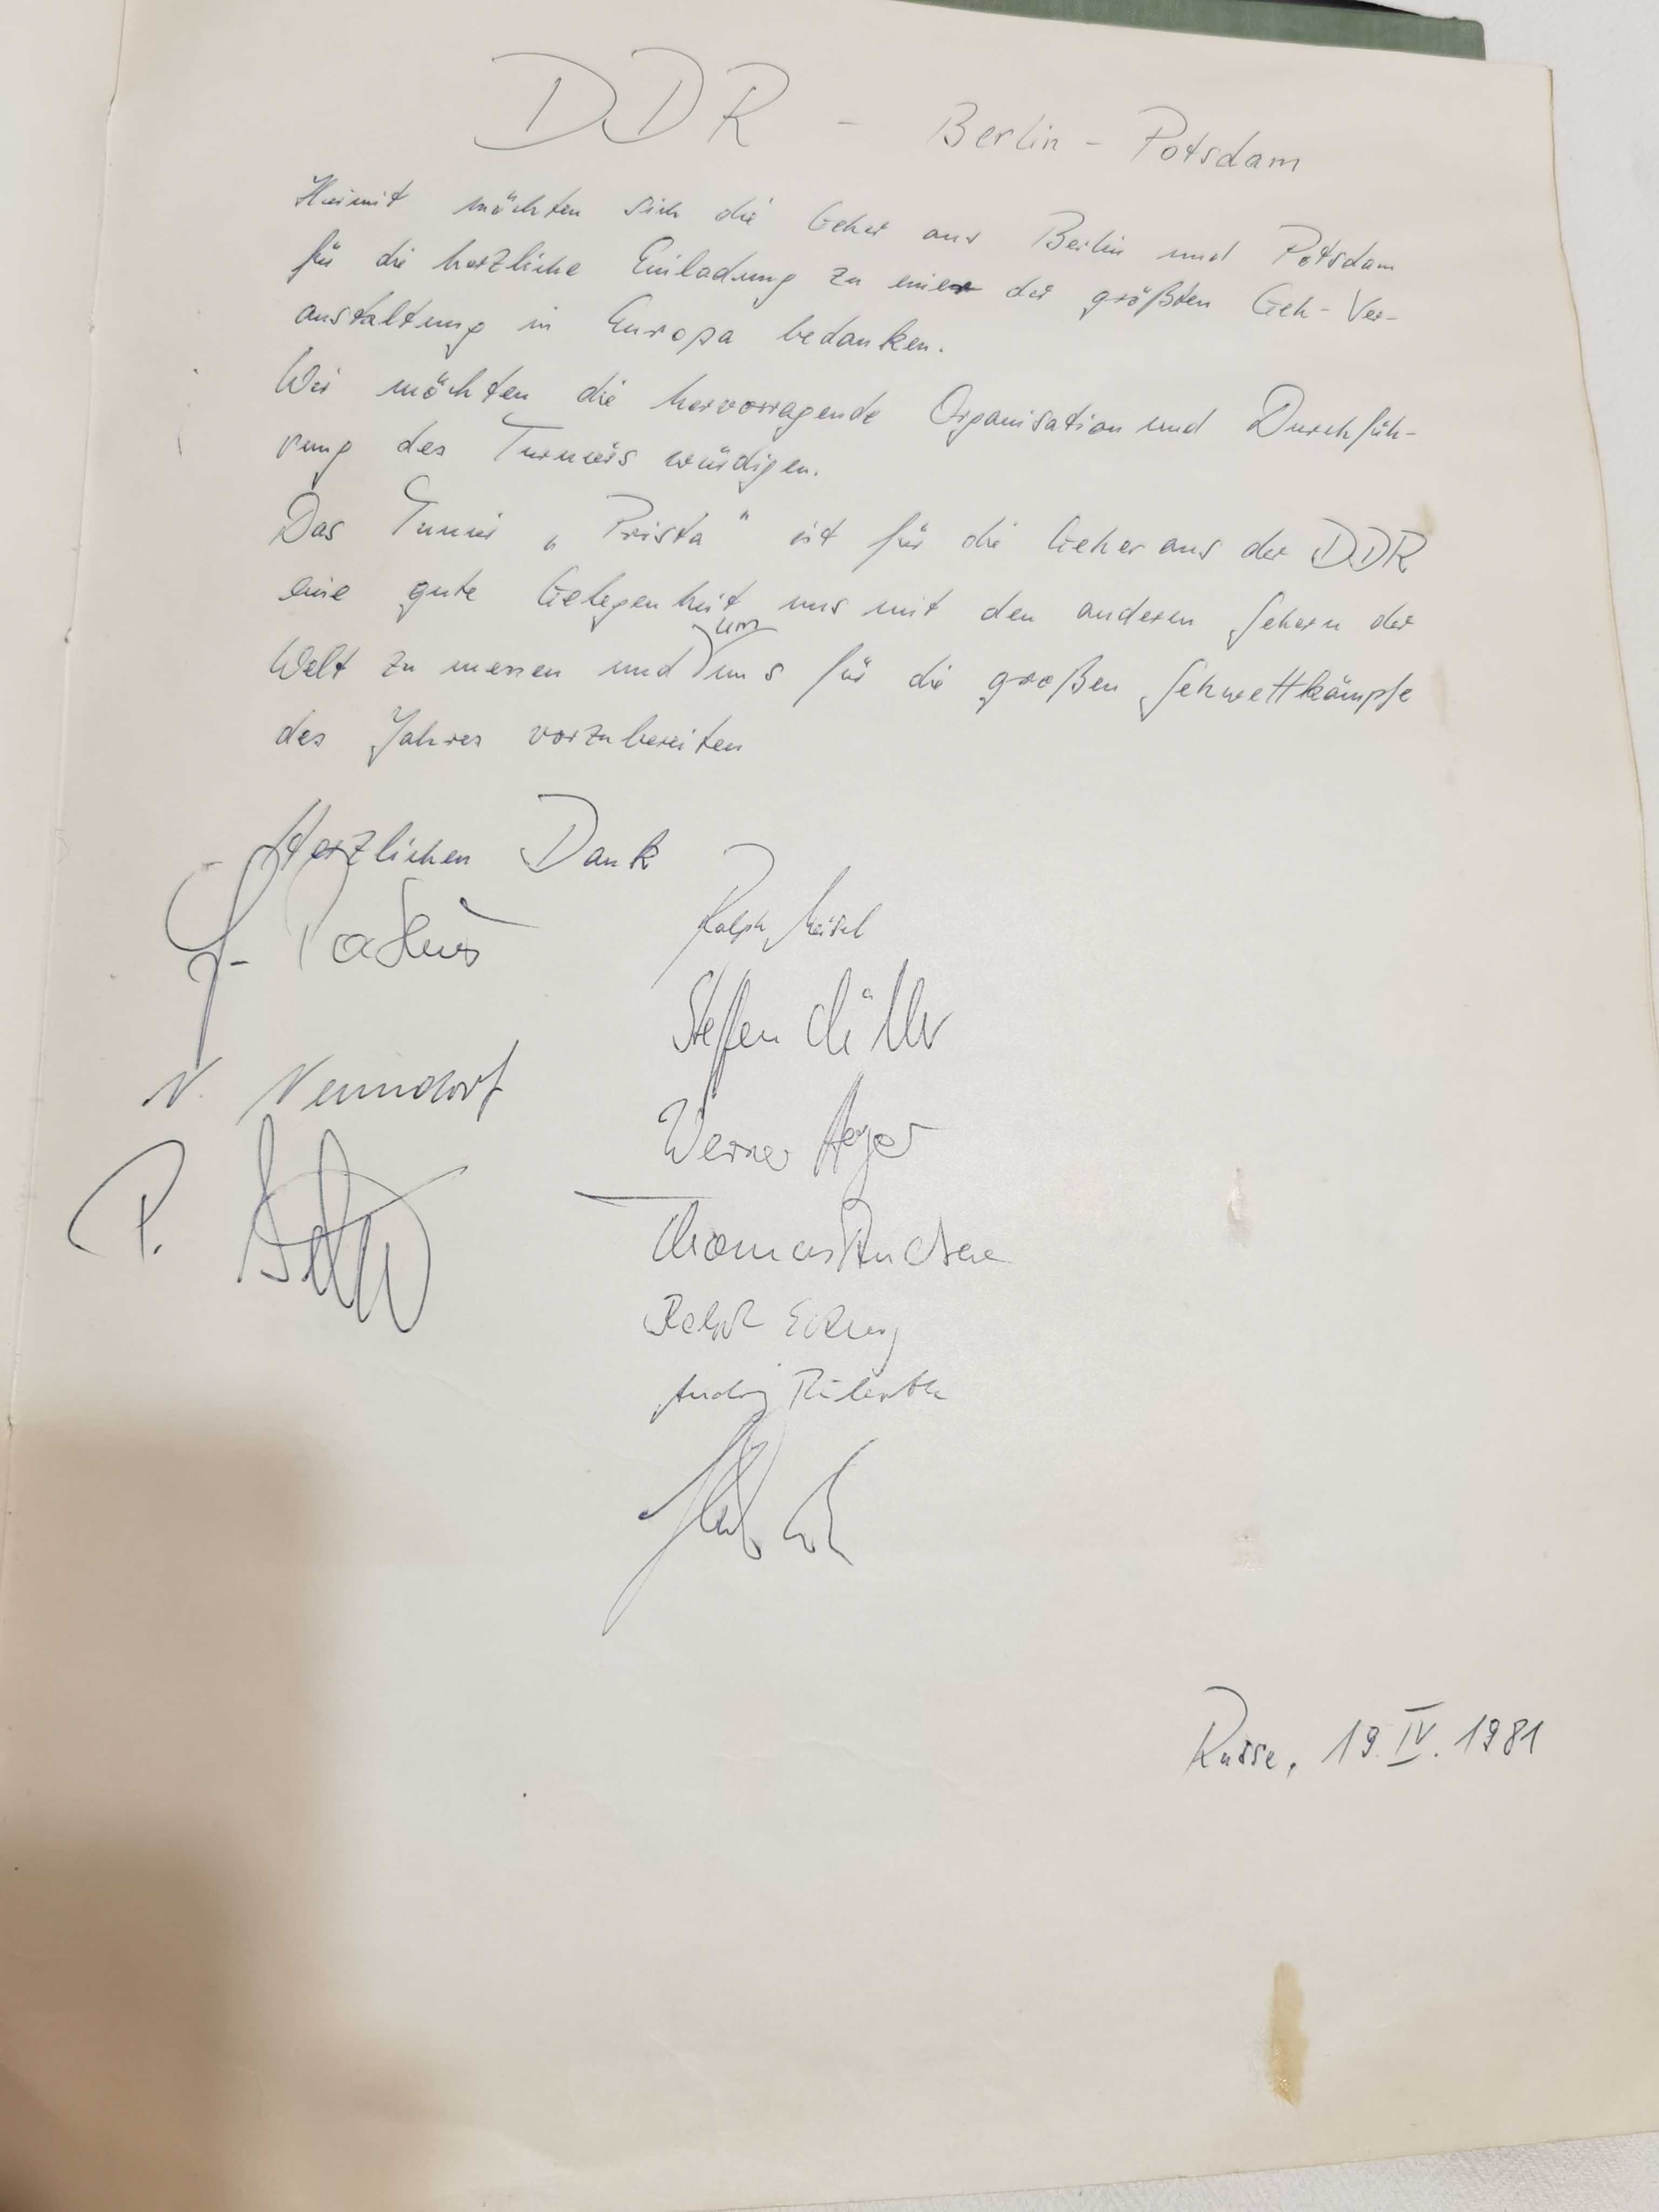 DDR - Berlin - Potsdam
Hiermit möchten sich die Geher aus Berlin und Potsdam
für die herzliche Einladung zu einer der größten Geh-Ver-
anstaltung in Europa bedanken.
Wir möchten die hervorragende Organisation und Durchfüh-
rung des Turniers würdigen.
Das Turnier „Prista" ist für die Geher aus der DDR
eine gute Gelegenheit uns mit den anderen Gehern der
um
Welt zu messen und uns für die großen Gehwettkämpfe
des Jahres vorzubereiten
Herzlichen Dank
Ralph
Steffen Müller
N. Neumdorf
Werner Heyer
P.
Thomas
Ralph
Russe, 19.IV.1981